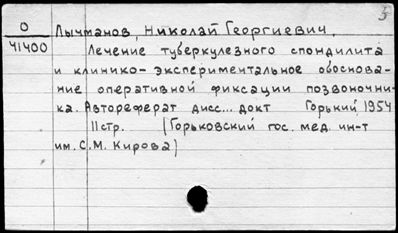 3
О Лычманов, Николай Георгиевич,
41400 Лечение туберкулезного спондилита
и клинико-экспериментальное обоснова-
ние оперативной фиксации позвоночни-
ка. Автореферат дисс... докт Горький 1954
11стр. (Горьковский гос. мед. ин-т
им. С.М. Кирова)